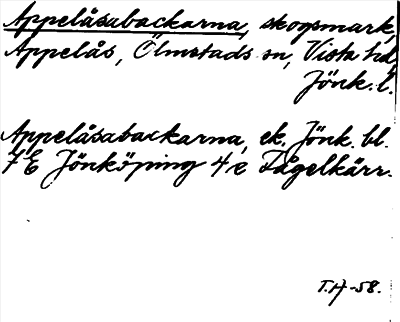 Appelåsabackarna, skogsmark,
Appelås, Ölmstads sn, Vista hd,
Jönk. l.
Appelåsabackarna, ek. Jönk. bl.
7E Jönköping 4e Fågelkärr.
T.H-58.